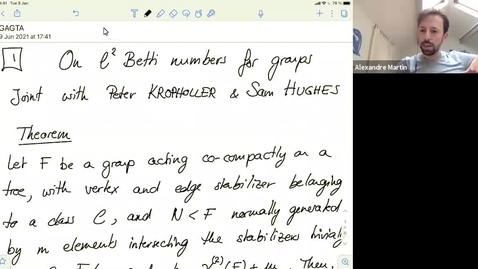 GAGTA
9 Jun 2021 at 17:41
1 On ℓ² Betti numbers for groups
Joint with Peter KROPHOLLER & Sam HUGHES
Theorem
Let F be a group acting co-compactly on a
tree, with vertex and edge stabilizer belonging
to a class C, and N < F normally generated
by m elements intersecting the stabilizers trivially
Then,
Alexandre Martin